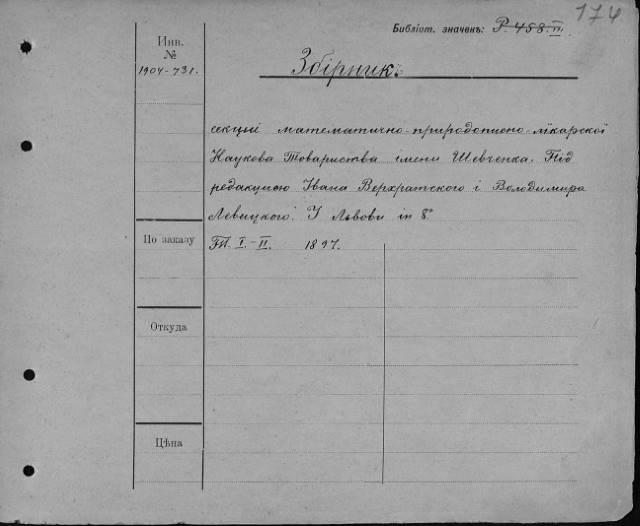 174
Библіот. значекъ: P. 458. III.
Инв.
№
1904-731.
Збірникъ
секциї математично-природописно-лїкарскої
Наукова Товариства імени Шевченка. Під
редакциєю Івана Верхратского і Володимира
Левицкого. У Львові in 8°
По заказу
Тт. I.-II. 1897.
Откуда
Цѣна